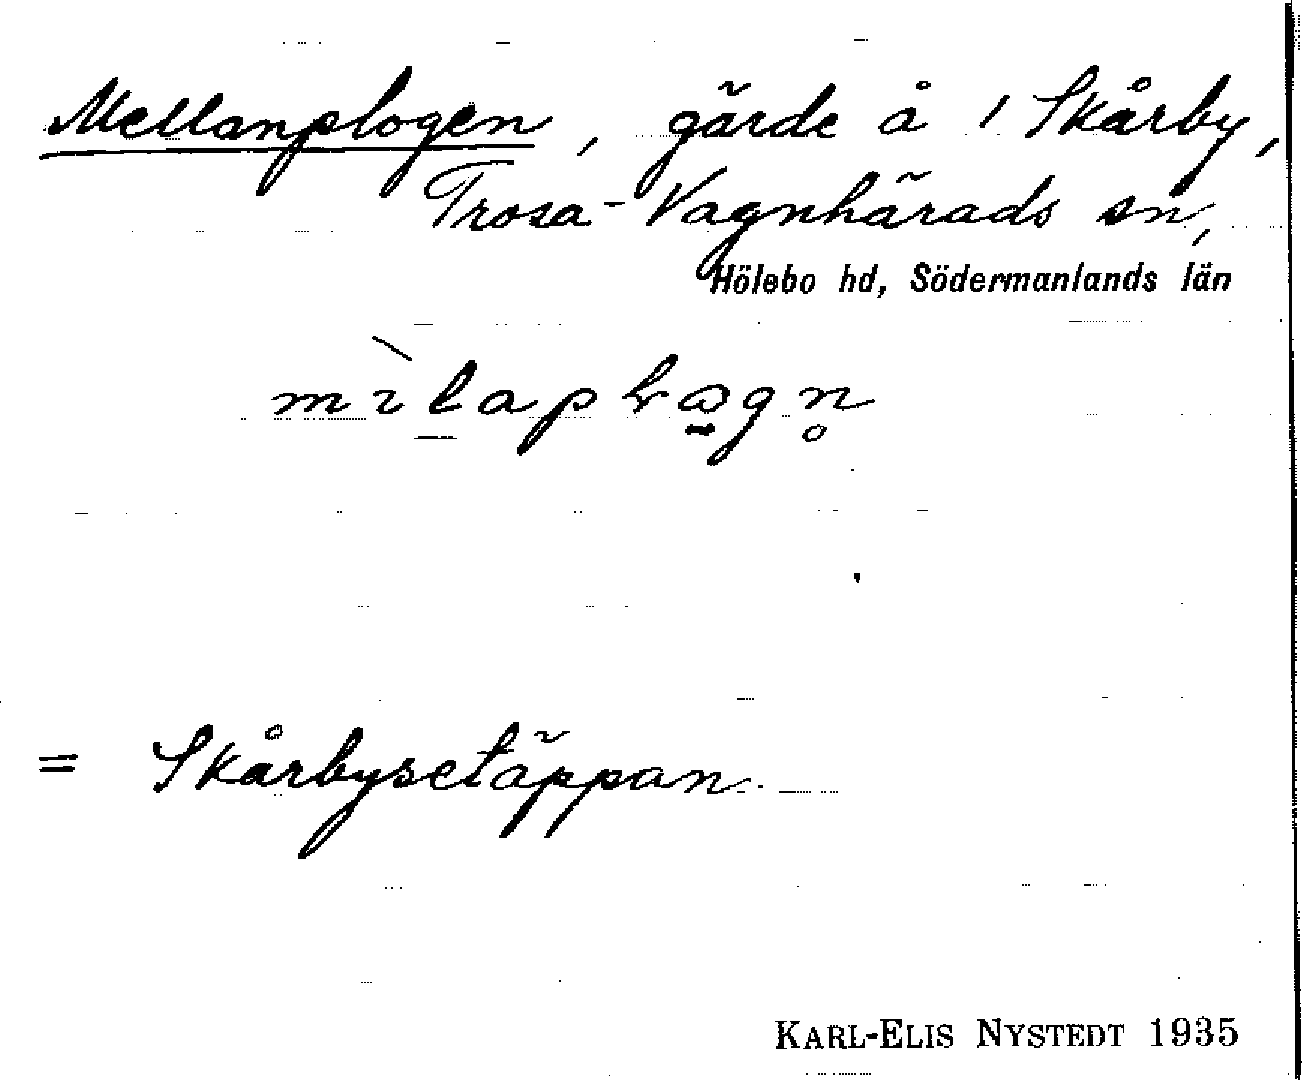 Mellanplogen, gärde å 1 Skårby,
Trosa-Vagnhärads sn,
Hölebo hd, Södermanlands län
= Skårbysetäppan.
KARL-ELIS NYSTEDT 1935